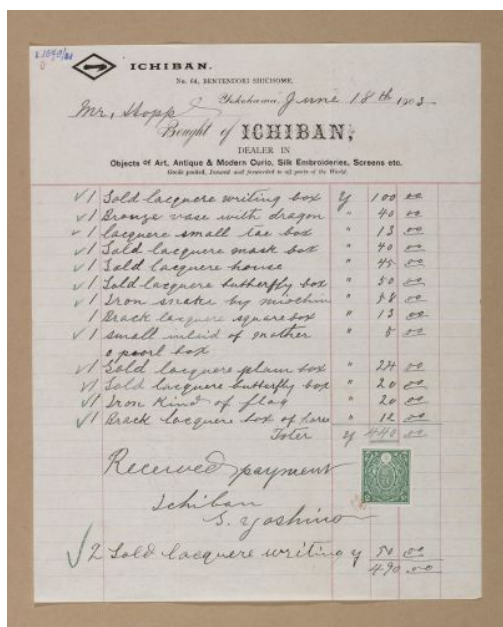 ICHIBAN.
No. 64, BENTENDORI SHICHOME.
Yokohama, June 18th 1903
Mr. Hopp
Bought of ICHIBAN,
DEALER IN
Objects of Art, Antique & Modern Curio, Silk Embroideries, Screens etc.
Goods packed, Insured and forwarded to all parts of the World.
✓ 1 Gold lacquere writing box Y 100 00
✓ 1 Bronze vase with dragon " 40 00
✓ 1 lacquere small tae box " 13 00
✓ 1 Gold lacquere mask box " 40 00
✓ 1 Gold lacquere house " 45 00
✓ 1 Gold lacquere butterfly box " 50 00
✓ 1 Iron snake by miochin " 58 00
1 Brack lacquere square box " 13 00
✓ 1 small inlaid of mother " 5 00
o pearl box
✓ 1 Gold lacquere plain box " 24 00
✓ 1 Gold lacquere butterfly box " 20 00
✓ 1 Iron Kind of flag " 20 00
✓ 1 Brack lacquere box of " 12 00
Toter Y 440 00
Received payment
Ichiban
S. Yoshino
✓ 2 Gold lacquere writing Y 50 00
490 00